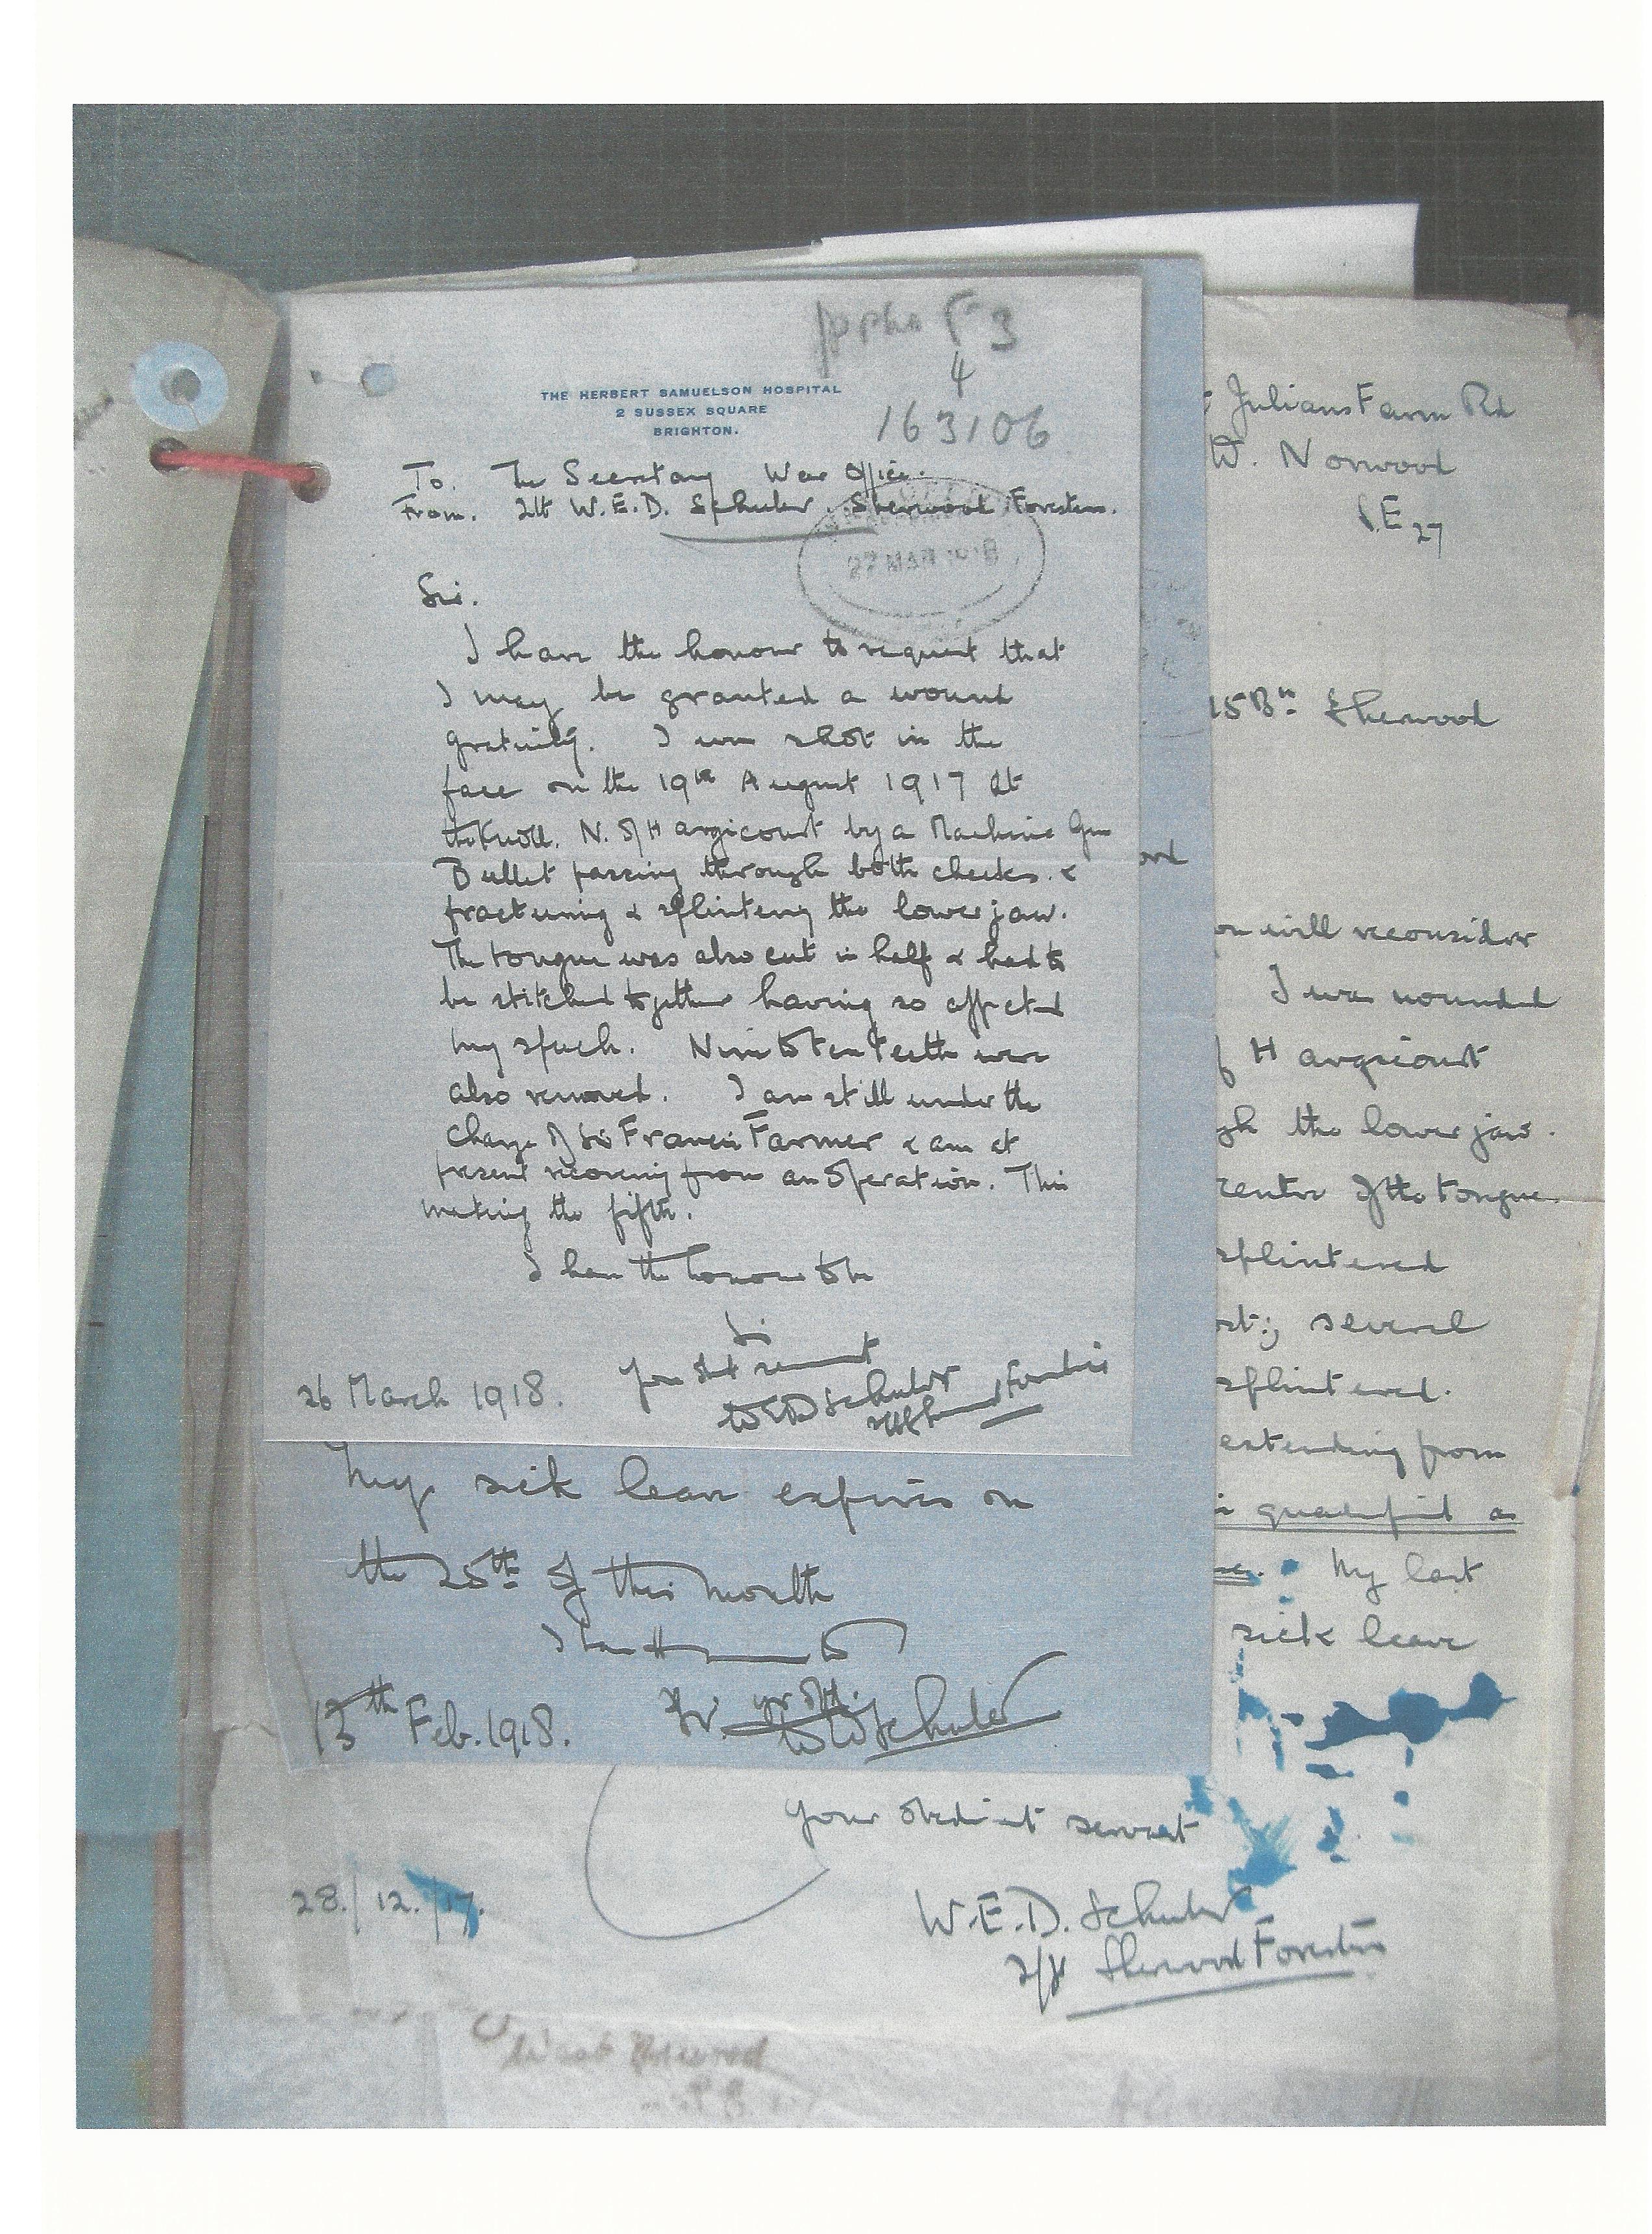 F 3
4
THE HERBERT SAMUELSON HOSPITAL
2 SUSSEX SQUARE
BRIGHTON.
163106
To. The Secretary War Office.
From. 2Lt W.E.D. Schuler. Sherwood Foresters.
27 MAR 1918
Sir.
I have the honour to request that
I may be granted a wound
gratuity. I was shot in the
face on the 19th August 1917 at
the Knoll. N. of Hargicourt by a Machine Gun
Bullet passing through both cheeks. &
fracturing & splintering the lower jaw.
The tongue was also cut in half & had to
be stitched together having so affected
my speech. Nine to ten teeth were
also removed. I am still under the
charge of Sir Francis Farmer & am at
present recovering from an operation. This
making the fifth.
I have the honour to be
Sir
Your Obt servant
26 March 1918.
WED Schuler
Foresters
My sick leave expires on
the 25th of this month
13th Feb. 1918.
Schuler
Julians Farm Rd
W. Norwood
S.E 27
15 Bn Sherwood
ord
ou will reconsider
I was wounded
f Hargicourt
gh the lower jaw.
centre of the tongue.
splintered
several
splintered.
extending from
qualified as
My last
sick leave
Your obedient servant
28./12./17.
W.E.D. Schuler
2/Lt Sherwood Foresters
West Norwood